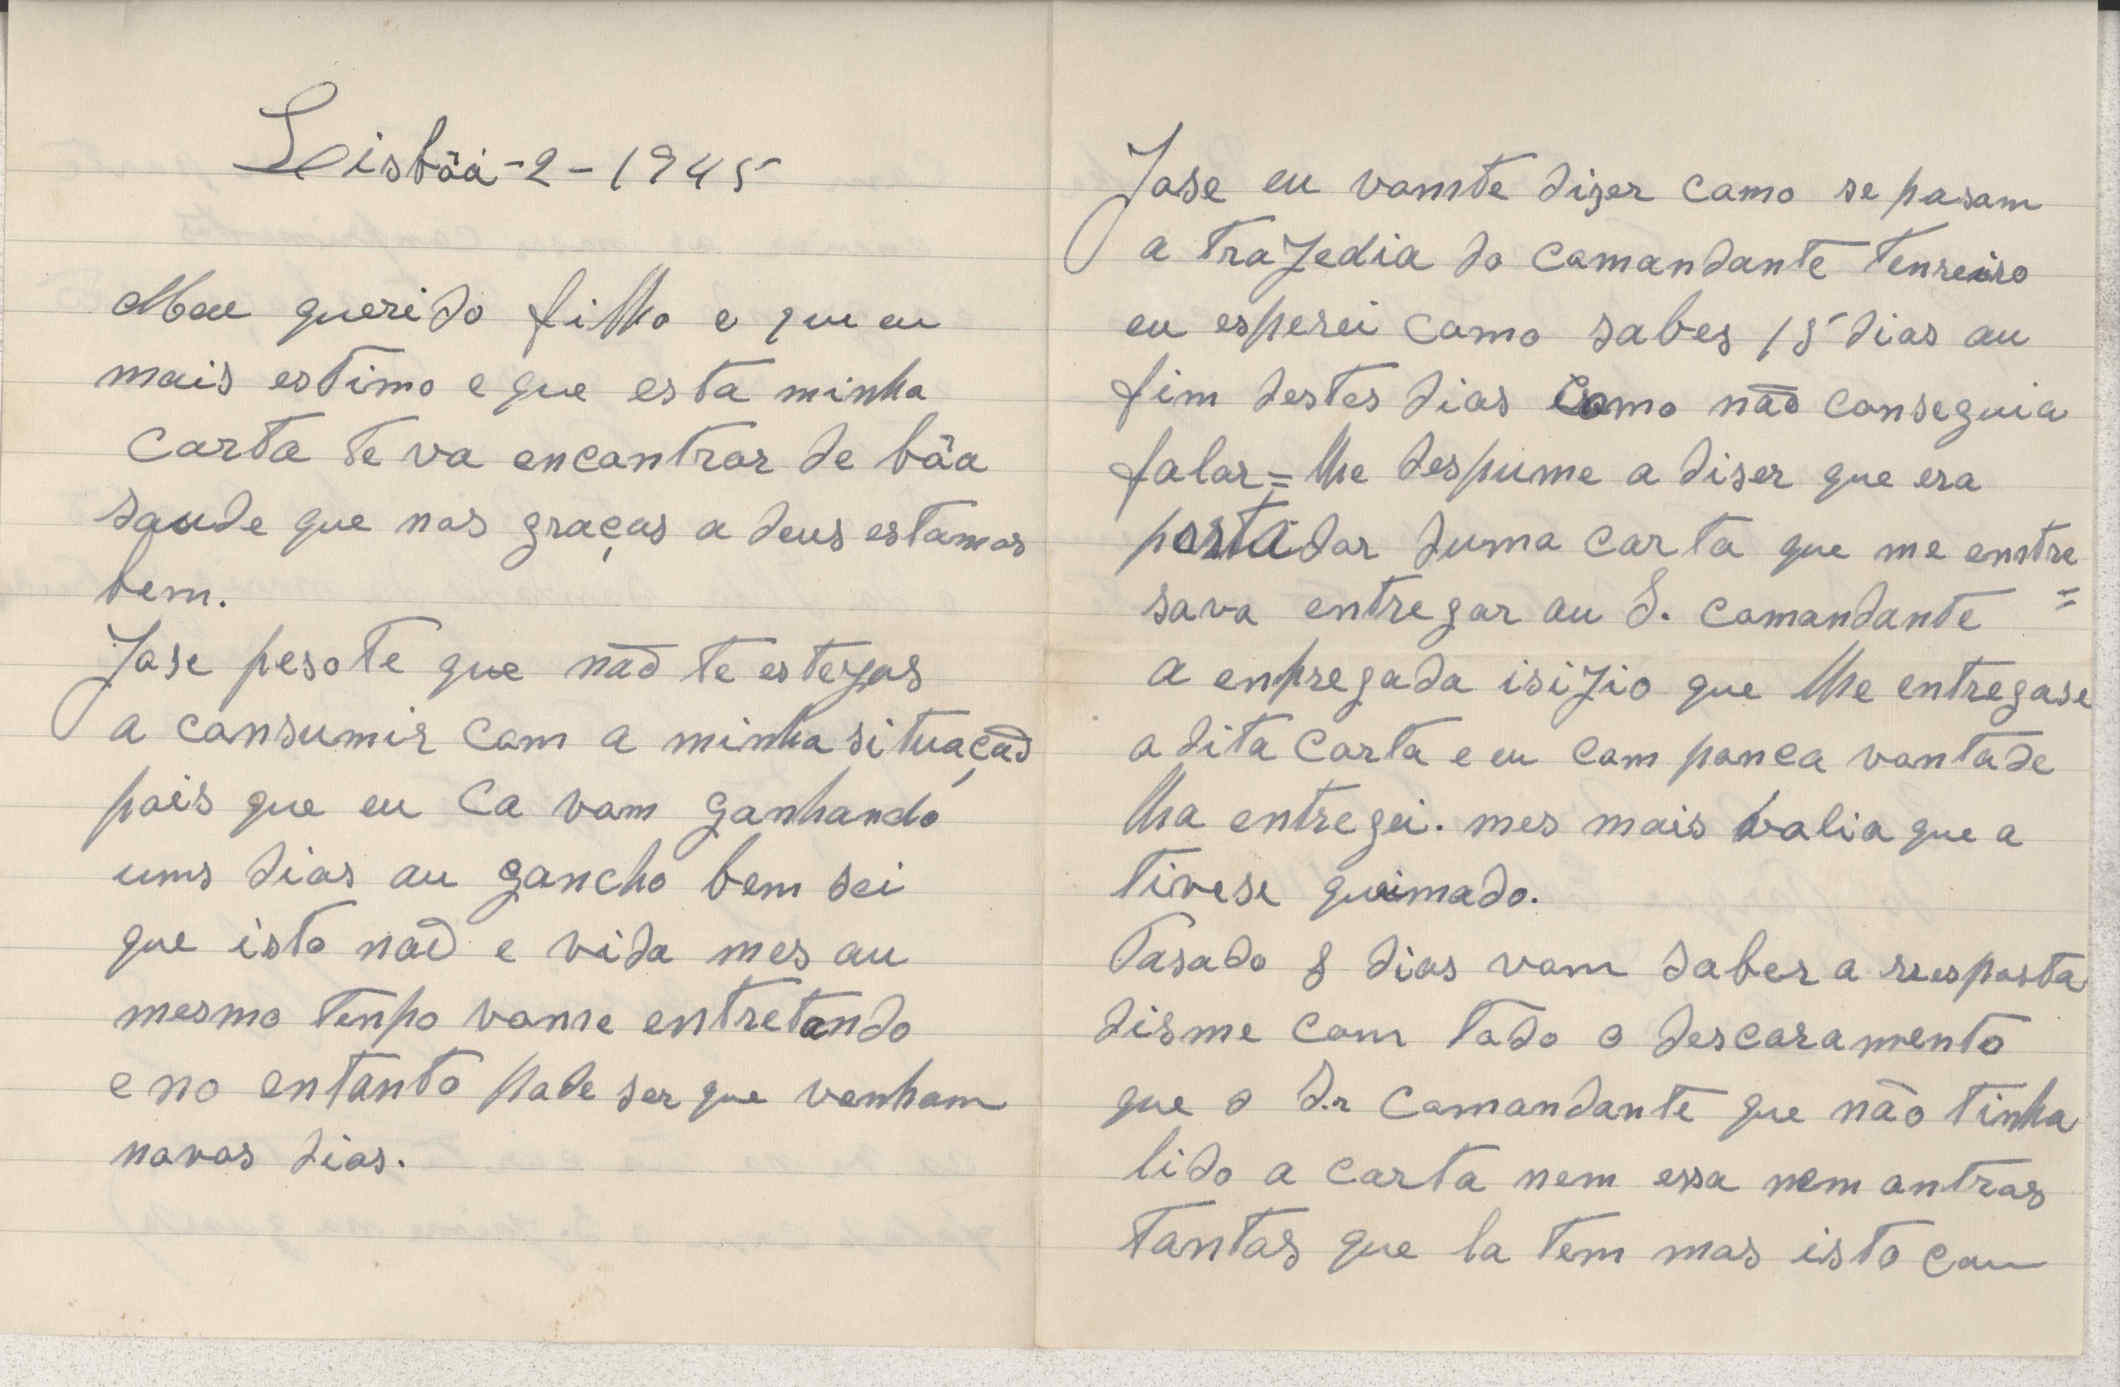 Lisbôa-2-1945
Meu querido filho o que eu
mais estimo e que esta minha
carta te va encontrar de bôa
saude que nos graças a deus estamos
bem.
Jose pesote que não te estejas
a consumir com a minha situação
pois que eu ca vom ganhando
uns dias au gancho bem sei
que isto não e vida mes au
mesmo tenpo vome entretando
e no entanto pode ser que venham
novos dias.
Jose eu vomte diser como se pasam
a trajedia do comandante tenreiro
eu esperei como sabes 15 dias au
fim destes dias como não conseguia
falar=lhe despume a diser que era
portador duma carta que me enntre
sava entregar au S. comandante =
a enpregada isijio que lhe entregase
a dita carta e eu com ponca vontade
lha entregei. mes mais valia que a
tivese queimado.
Pasado 8 dias vom saber a resposta
disme com todo o descaramento
que o S.r comandante que não tinha
lido a carta nem essa nem ontras
tantas que la tem mas isto com